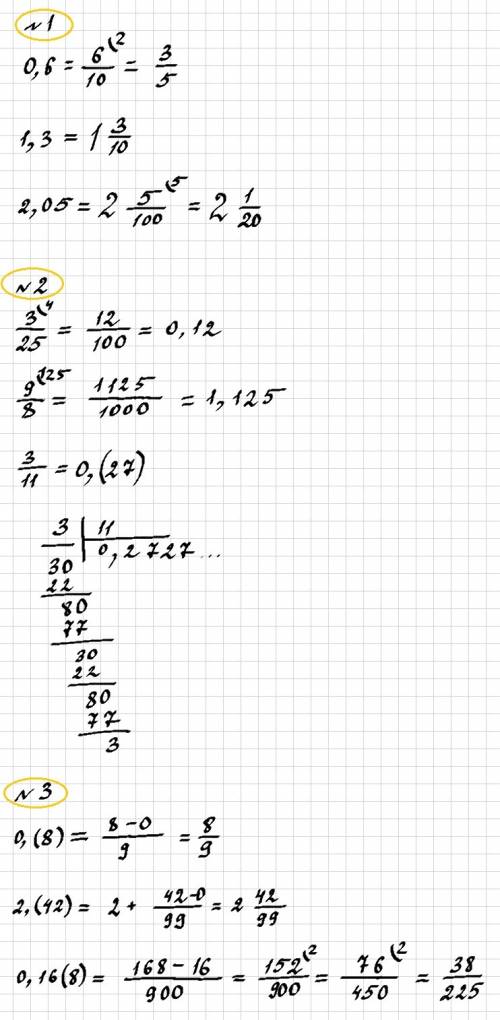 №1
0,6 = 6/10 (2 = 3/5
1,3 = 1 3/10
2,05 = 2 5/100 (5 = 2 1/20
№2
3/25 (4 = 12/100 = 0,12
9/8 (125 = 1125/1000 = 1,125
3/11 = 0,(27)
3 | 11
30 | 0,2727...
22
80
77
30
22
80
77
3
№3
0,(8) = 8-0/9 = 8/9
2,(42) = 2 + 42-0/99 = 2 42/99
0,16(8) = 168-16/900 = 152/900 (2 = 76/450 (2 = 38/225